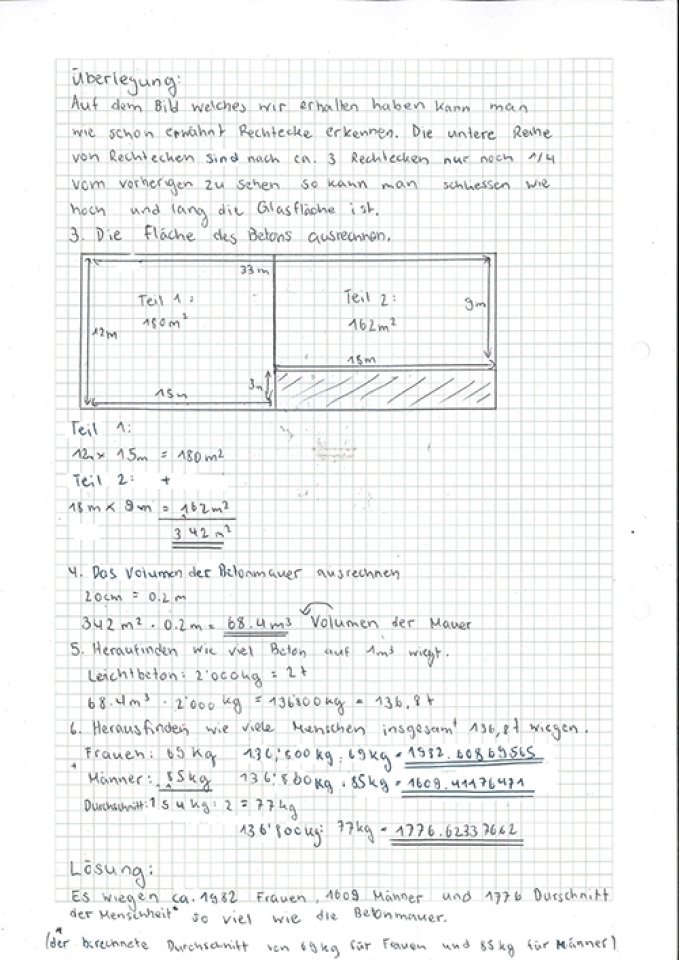 Überlegung:
Auf dem Bild welches wir erhalten haben kann man
wie schon erwähnt Rechtecke erkennen. Die untere Reihe
von Rechtecken sind nach ca. 3 Rechtecken nur noch 1/4
vom vorherigen zu sehen so kann man schliessen wie
hoch und lang die Glasfläche ist.
3. Die Fläche des Betons ausrechnen.
33m
Teil 1:
180m²
12m
15m
Teil 2:
162m²
9m
18m
3m
Teil 1:
12m x 15m = 180m²
Teil 2: +
18m x 9m = 162m²
342m²
4. Das Volumen der Betonmauer ausrechnen
20cm = 0.2m
342m² · 0.2m = 68.4m³ Volumen der Mauer
5. Heraufinden wie viel Beton auf 1m³ wiegt.
Leichtbeton: 2'000kg = 2t
68.4m³ · 2'000 kg = 136'800kg = 136,8t
6. Herausfinden wie viele Menschen insgesamt 136,8t wiegen.
Frauen: 69kg 136'800kg : 69kg = 1982.60869565
+
Männer: 85kg 136'800kg : 85kg = 1609.41176471
Durchschnitt: 154kg : 2 = 77kg
136'800kg : 77kg = 1776.62337662
Lösung:
Es wiegen ca. 1982 Frauen, 1609 Männer und 1776 Durschnitt
der Menschheit* so viel wie die Betonmauer.
*
(der berechnete Durchschnitt von 69kg für Frauen und 85kg für Männer)